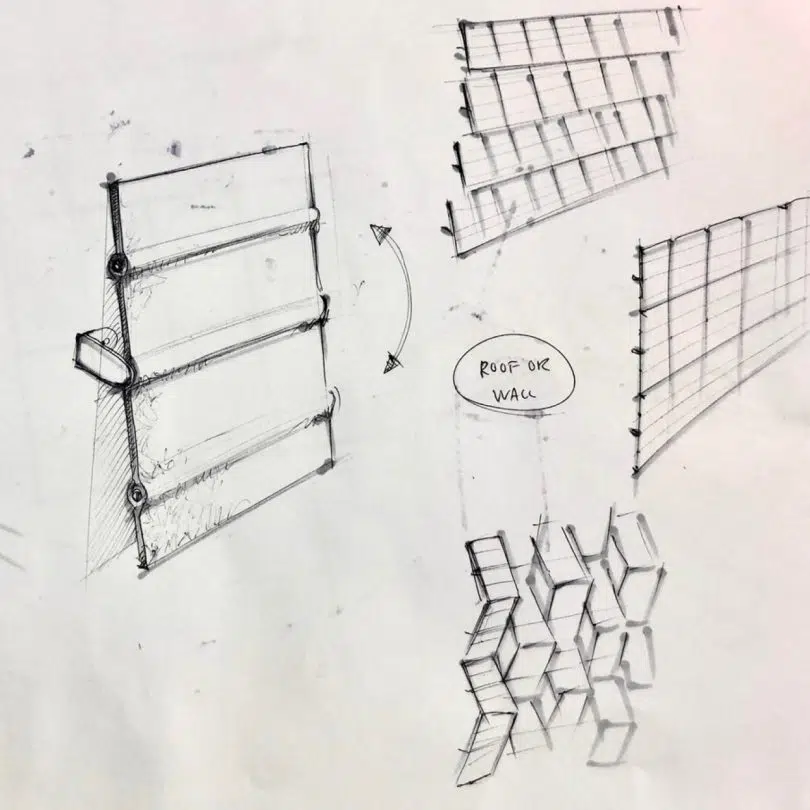 ROOF OR
WALL